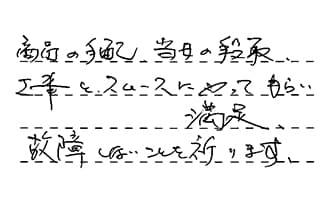 商品の手配、当日の段取、
工事とスムースにやってもらい
満足、
故障しないことを祈ります。